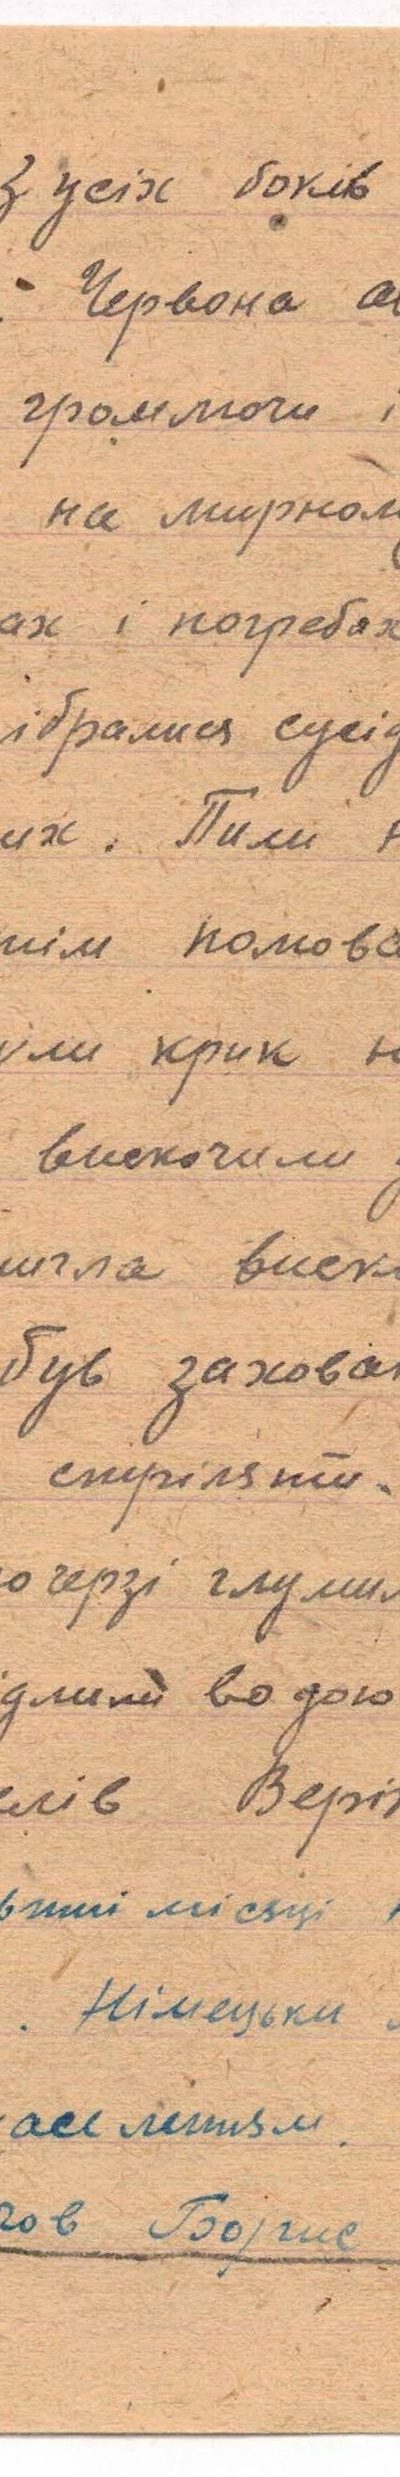 З усіх боків
Червона
громлючи і
на мирном
ах і погребах
ібралися сусід
их. Пили н
тім помов
ули крик н
вискочили у
могла виск
був захован
стріляти.
по черзі глумил
ідлили водою
елів Верін
місяці
. Німецьки
населенням.
ов Борис